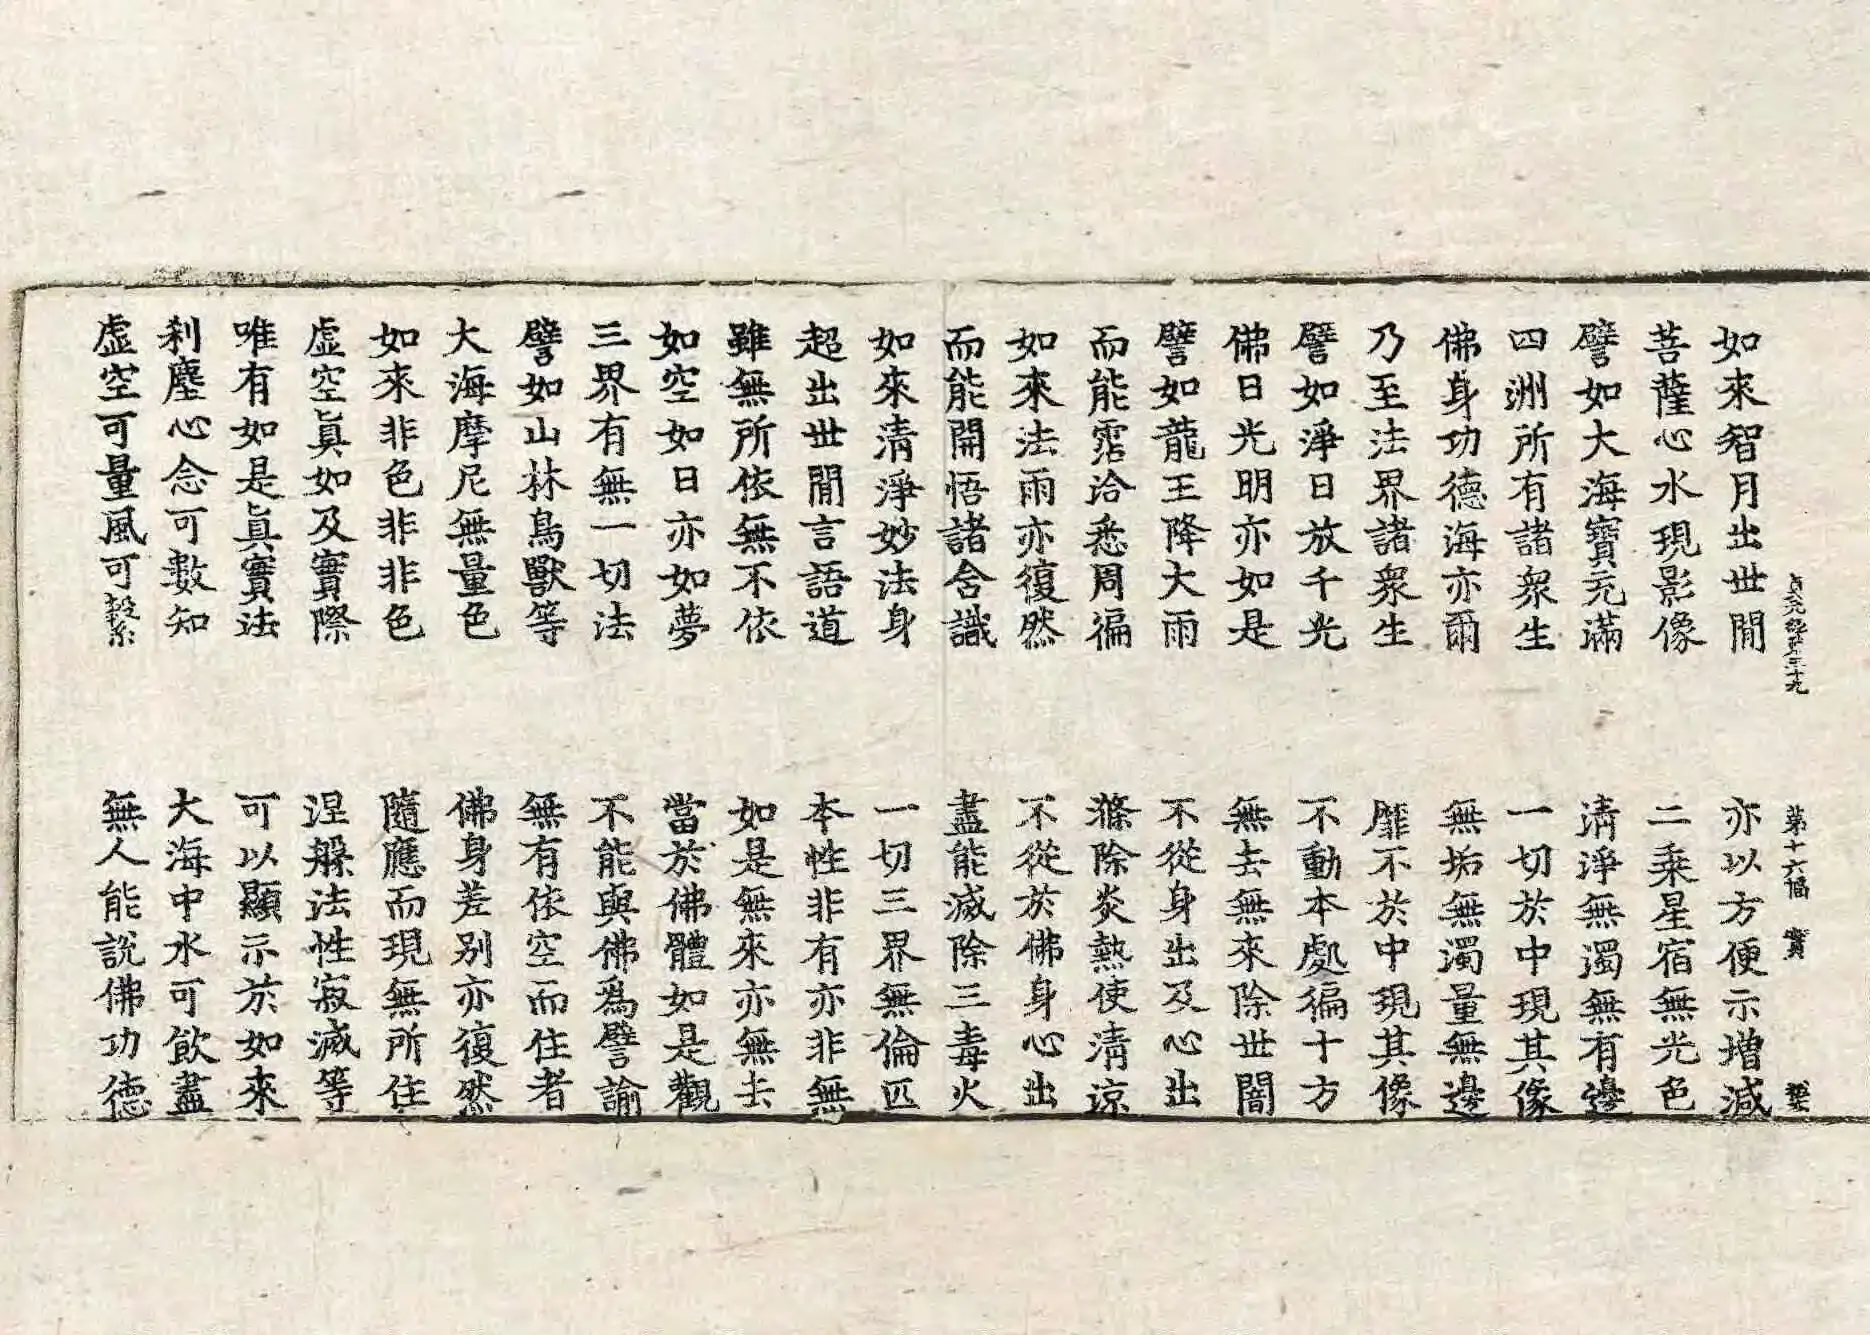 貞元經第三十九 第十六幅 實
如來智月出世閒 亦以方便示增減
菩薩心水現影像 二乘星宿無光色
譬如大海寶充滿 清淨無濁無有邊
四洲所有諸衆生 一切於中現其像
佛身功德海亦爾 無垢無濁量無邊
乃至法界諸衆生 靡不於中現其像
譬如淨日放千光 不動本處徧十方
佛日光明亦如是 無去無來除世闇
譬如龍王降大雨 不從身出及心出
而能霑洽悉周徧 滌除炎熱使清涼
如來法雨亦復然 不從於佛身心出
而能開悟諸含識 盡能滅除三毒火
如來清淨妙法身 一切三界無倫匹
超出世閒言語道 本性非有亦非無
雖無所依無不依 如是無來亦無去
如空如日亦如夢 當於佛體如是觀
三界有無一切法 不能與佛爲譬諭
譬如山林鳥獸等 無有依空而住者
大海摩尼無量色 佛身差別亦復然
如來非色非非色 隨應而現無所住
虛空眞如及實際 涅槃法性寂滅等
唯有如是眞實法 可以顯示於如來
刹塵心念可數知 大海中水可飮盡
虛空可量風可繫 無人能說佛功德